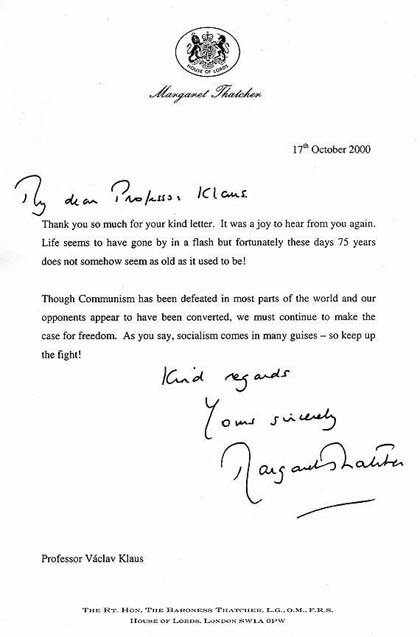 HOUSE OF LORDS
Margaret Thatcher
17th October 2000
My dear Professor Klaus.
Thank you so much for your kind letter. It was a joy to hear from you again.
Life seems to have gone by in a flash but fortunately these days 75 years
does not somehow seem as old as it used to be!
Though Communism has been defeated in most parts of the world and our
opponents appear to have been converted, we must continue to make the
case for freedom. As you say, socialism comes in many guises – so keep up
the fight!
Kind regards
Yours sincerely
Margaret Thatcher
Professor Václav Klaus
The Rt. Hon. The Baroness Thatcher, L.G., O.M., F.R.S.
House of Lords, London SW1A 0PW